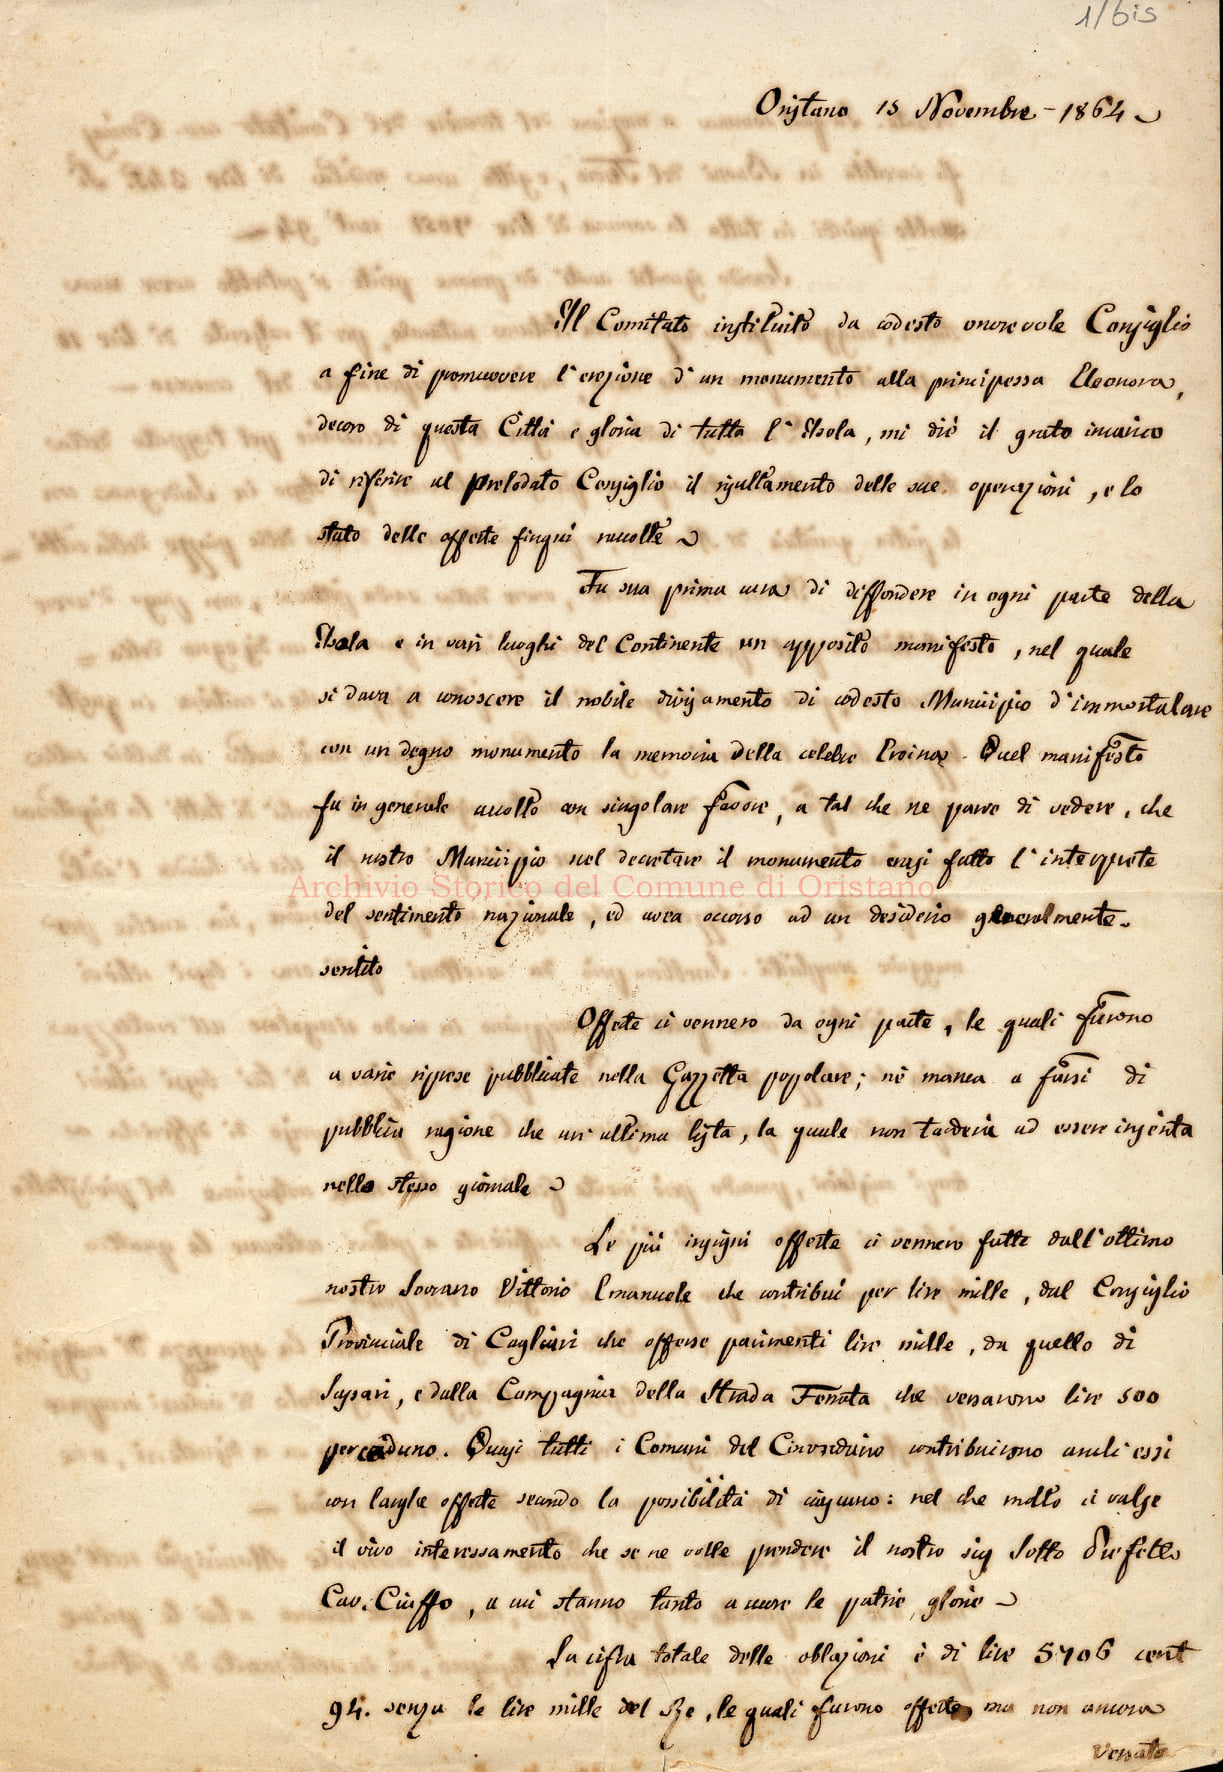 1/bis
Oristano 15 Novembre - 1864
Il Comitato instituito da codesto onorevole Consiglio
a fine di promuovere l'erezione d'un monumento alla principessa Eleonora,
decoro di questa Città e gloria di tutta l'Isola, mi diè il grato incarico
di riferire al prelodato Consiglio il risultamento delle sue operazioni, e lo
stato delle offerte finqui raccolte
Fu sua prima cura di diffondere in ogni parte della
Isola e in vari luoghi del Continente un apposito manifesto, nel quale
si dava a conoscere il nobile divisamento di codesto Municipio d'immortalare
con un degno monumento la memoria della celebre Eroina. Quel manifesto
fu in generale accolto con singolare favore, a tal che ne parve di vedere, che
il nostro Municipio nel decretare il monumento erasi fatto l'interprete
Archivio Storico del Comune di Oristano
del sentimento nazionale, ed avea occorso ad un desiderio generalmente
sentito
Offerte ci vennero da ogni parte, le quali furono
a varie riprese pubblicate nella Gazzetta popolare; nè manca a farsi di
pubblica ragione che un'ultima lista, la quale non tarderà ad essere inserita
nello stesso giornale
Le più insigni offerte ci vennero fatte dall'ottimo
nostro Sovrano Vittorio Emanuele che contribuì per lire mille, dal Consiglio
Provinciale di Cagliari che offerse parimenti lire mille, da quello di
Sassari, e dalla Compagnia della Strada Ferrata che versarono lire 500
per caduno. Quasi tutti i Comuni del Circondario contribuirono anch'essi
con larghe offerte secondo la possibilità di ciascuno: nel che molto ci valse
il vivo interessamento che se ne volle prendere il nostro sig Sotto Prefetto
Cav. Ciuffo, a cui stanno tanto a cuore le patrie glorie
La cifra totale delle oblazioni è di lire 5706 cent
94. senza le lire mille del Re, le quali furono offerte, ma non ancora
versate